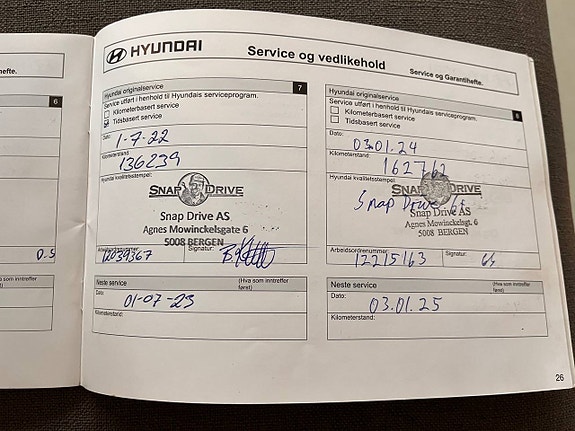 HYUNDAI
Service og vedlikehold
Service og Garantihefte.
hefte.
6
0.5
Hyundai originalservice
7
Service utført i henhold til Hyundais serviceprogram.
Kilometerbasert service
Tidsbasert service
Dato:
1-7-22
Kilometerstand:
136239
Hyundai kvalitetsstempel:
SNAP DRIVE
Snap Drive AS
Agnes Mowinckelsgate 6
5008 BERGEN
Signatur:
12039367
Neste service
(Hva som inntreffer først)
Dato:
01-07-23
Kilometerstand:
Hyundai originalservice
8
Service utført i henhold til Hyundais serviceprogram.
Kilometerbasert service
Tidsbasert service
Dato:
03.01.24
Kilometerstand:
162762
Hyundai kvalitetsstempel:
Snap Drive
Snap Drive AS
Agnes Mowinckelsgt. 6
5008 BERGEN
Arbeidsordrenummer:
Signatur:
12215163
Neste service
(Hva som inntreffer først)
Dato:
03.01.25
Kilometerstand:
som inntreffer
26